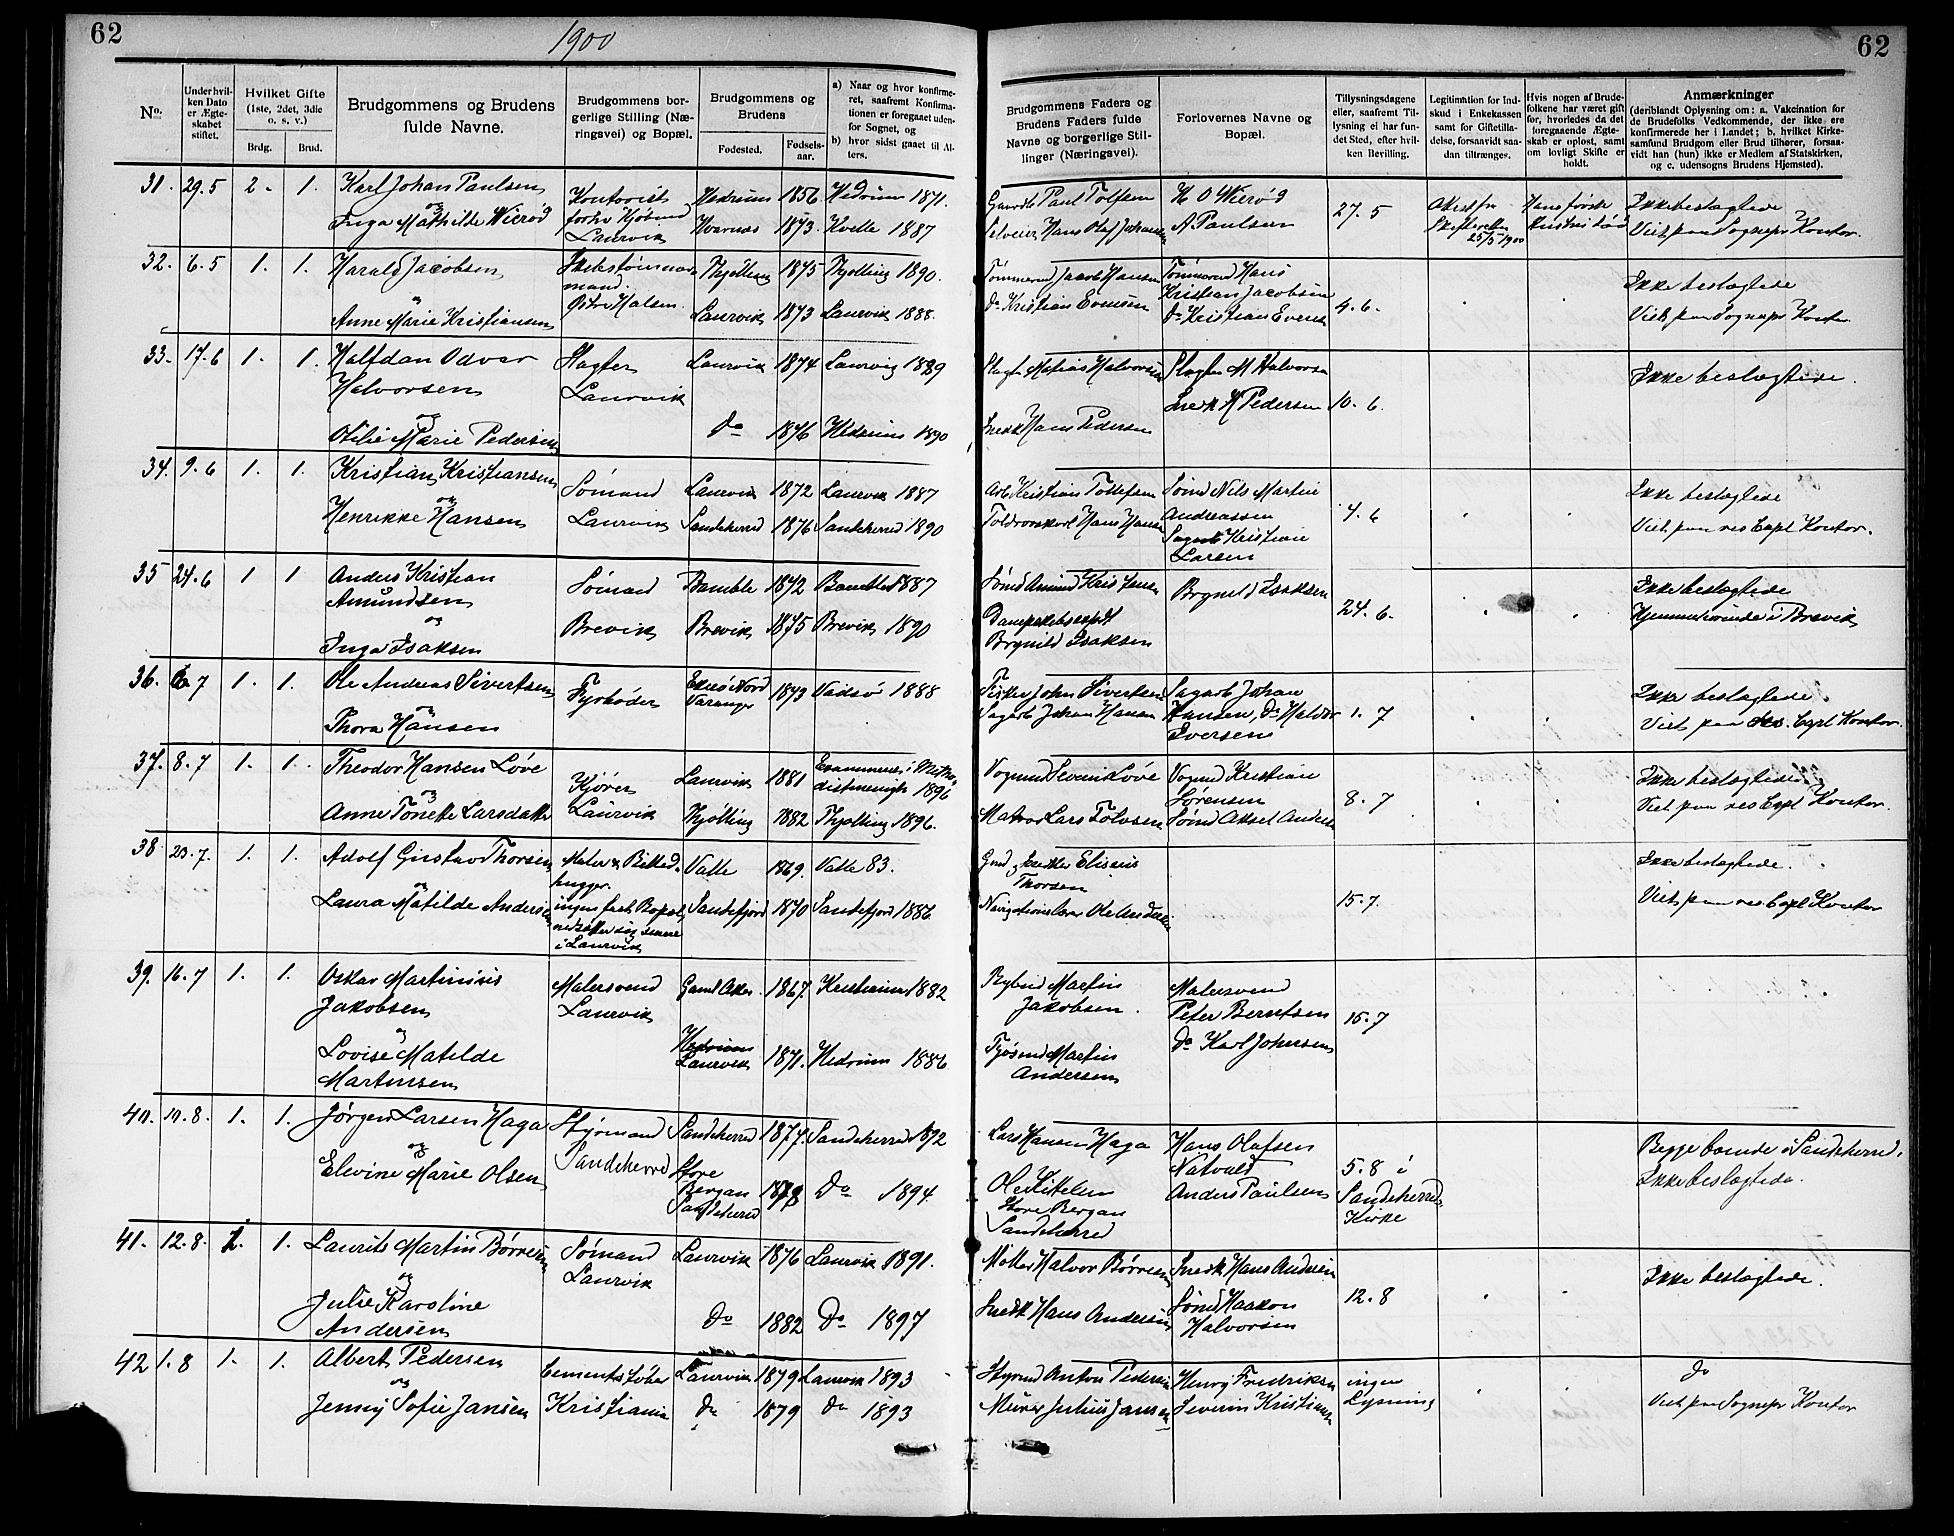 62
1900
62
No.
Under hvilken Dato er Ægteskabet stiftet.
Hvilket Gifte (1ste, 2det, 3die o. s. v.)
Brdg.
Brud.
Brudgommens og Brudens fulde Navne.
Brudgommens borgerlige Stilling (Næringsvei) og Bopæl.
Brudgommens og Brudens
Fødested.
Fødselsaar.
a) Naar og hvor konfirmeret, saafremt Konfirmationen er foregaaet udenfor Sognet, og
b) hvor sidst gaaet til Alters.
Brudgommens Faders og Brudens Faders fulde Navne og borgerlige Stillinger (Næringsvei).
Forlovernes Navne og Bopæl.
Tillysningsdagene eller, saafremt Tillysning ei har fundet Sted, efter hvilken Bevilling.
Legitimation for Indskud i Enkekassen samt for Giftetilladelse, forsaavidt saadan tiltrænges.
Hvis nogen af Brudefolkene har været gift før, hvorledes da det foregaaende Ægteskab er opløst, samt om lovligt Skifte er holdt.
Anmærkninger
(deriblandt Oplysning om: a. Vakcination for de Brudefolks Vedkommende, der ikke ere konfirmerede her i Landet; b. hvilket Kirkesamfund Brudgom eller Brud tilhører, forsaavidt han (hun) ikke er Medlem af Statskirken, og c. udensogns Brudens Hjemsted).
31. 29.5 2. 1. Karl Johan Paulsen Kontorist Hedrum 1856 Hedrum 1871.
og
Inga Mathilde Wierød Laurvik 1873. Kvelle 1887
Paul Tolfsen H O Wierød 27.5 Hans første Ikke beslægtede
Hans Olaf Johansen A Paulsen 25/5 1900 Viet paa Sognepr Kontor.
32. 6.5 1. 1. Harald Jacobsen Thjølling 1875 Thjølling 1890.
og
Anne Marie Kristiansen Østre Halsen Laurvik 1873 Laurvik 1888.
Tømmermd Jacob Hansen Tømmermd Hans Kristian Jacobsen 4.6. Ikke beslægtede
Do Kristian Evensen Do Kristian Evens Viet paa Sognepr Kontor
33. 17.6 1. 1. Halfdan Odvar Halvorsen Slagter Laurvik Laurvik 1874 Laurvig 1889
og
Otilie Marie Pedersen Do 1876 Hedrum 1890
Slagt Matias Halvorsen Slagter M Halvorsen 10.6. Ikke beslægtede.
Snedk Hans Pedersen Snedk H Pedersen
34. 9.6 1. 1. Kristian Kristiansen Sømand Laurvik 1872 Laurvik 1887
og
Henrikke Hansen Laurvik Sandeherred 1876 Sandeherred 1890
Arb Kristian Tollefsen Sømd Nils Martin Andreassen 4.6 Ikke beslægtede
Hans Hansen Kristian Larsen Viet paa res Capl Kontor.
35 24.6 1 1 Anders Kristian Amundsen Sømand Bamble 1872 Bamble 1887
og
Inga Isaksen Brevik Brevik 1875 Brevik 1890
Sømd Amund Kristensen Brynild Isaksen 24.6. Ikke beslægtede
Brynild Isaksen Hjemmehørende i Brevik
36. 6.7 1. 1. Ole Andreas Sivertsen Fyrbøder Nord Varanger 1873 Vadsø 1888
og
Thora Hansen
Fisker John Sivertsen Sagarb Johan Hansen, Do Halvor Eversen 1.7 Ikke beslægtede
Sagarb Johan Hansen Viet paa res. Capl Kontor.
37. 8.7 1. 1. Theodor Hansen Løve Kjører Laurvik 1881 Methodistmenigh 1896
og
Anne Tonette Larsdatter Laurvik Thjølling 1882 Thjølling 1896.
Vognmd Severin Løve Vognmd Kristian Sørensen 8.7 Ikke beslægtede
Lars Tolvsen Sømd Aksel Anders Viet paa res Capl Kontor.
38 20.7. 1. 1. Adolf Gustav Thorsen Maler & Billedhugger. Valle 1869. Valle 83.
og
Laura Matilde Andersen ingen fast Bopæl, nedsætter sig senere i Laurvik Sandefjord 1870 Sandefjord 1886
Elisius Thorsen 15.7. Ikke beslægtede.
Navigationslærer Ole Andersen Viet paa res Capl Kontor
39. 16.7 1. 1. Oskar Martinius Jakobsen Malersvend Laurvik Gaml Aker. 1867. Kristiania 1882
og
Lovise Matilde Martinsen Hedrum Laurvik 1871. Hedrum 1886
Martin Jakobsen. Malersvend Peter Berntsen 15.7
Martin Andersen Do Karl Johansen
40. 10.8. 1. 1. Jørgen Larsen Haga Styrmand Sandeherred 1877. Sandeherred 1892
og
Elevine Marie Olsen Sandeherred Store Bergan Sandeherred 1878 Do 1894.
Lars Hansen Haga Hans Olafsen Natvall 5.8 i Sandeherred Kirke Begge boende i Sandeherred.
Ole Kittelsen Store Bergan Sandeherred Anders Paulsen Ikke beslægtede.
41. 12.8. 1. 1. Laurits Martin Børresen Sømand Laurvik Laurvik 1876 Laurvik 1891.
og
Julie Karoline Andersen Do 1882 Do 1897
Møller Halvor Børresen Snedk Hans Andersen 12.8 Ikke beslægtede.
Snedk Hans Andersen Sømd Haakon Halvorsen
42 1.8 1. 1. Albert Pedersen Cementstøber Laurvik 1879 Laurvik 1893
og
Jenny Sofie Jansen Kristiania Do 1879 Do 1893
Styrmd Anton Pedersen Henry Fredriksen ingen Lysning Do
Murer Julius Jansen Severin Kristiansen Viet paa Sognepr Kontor